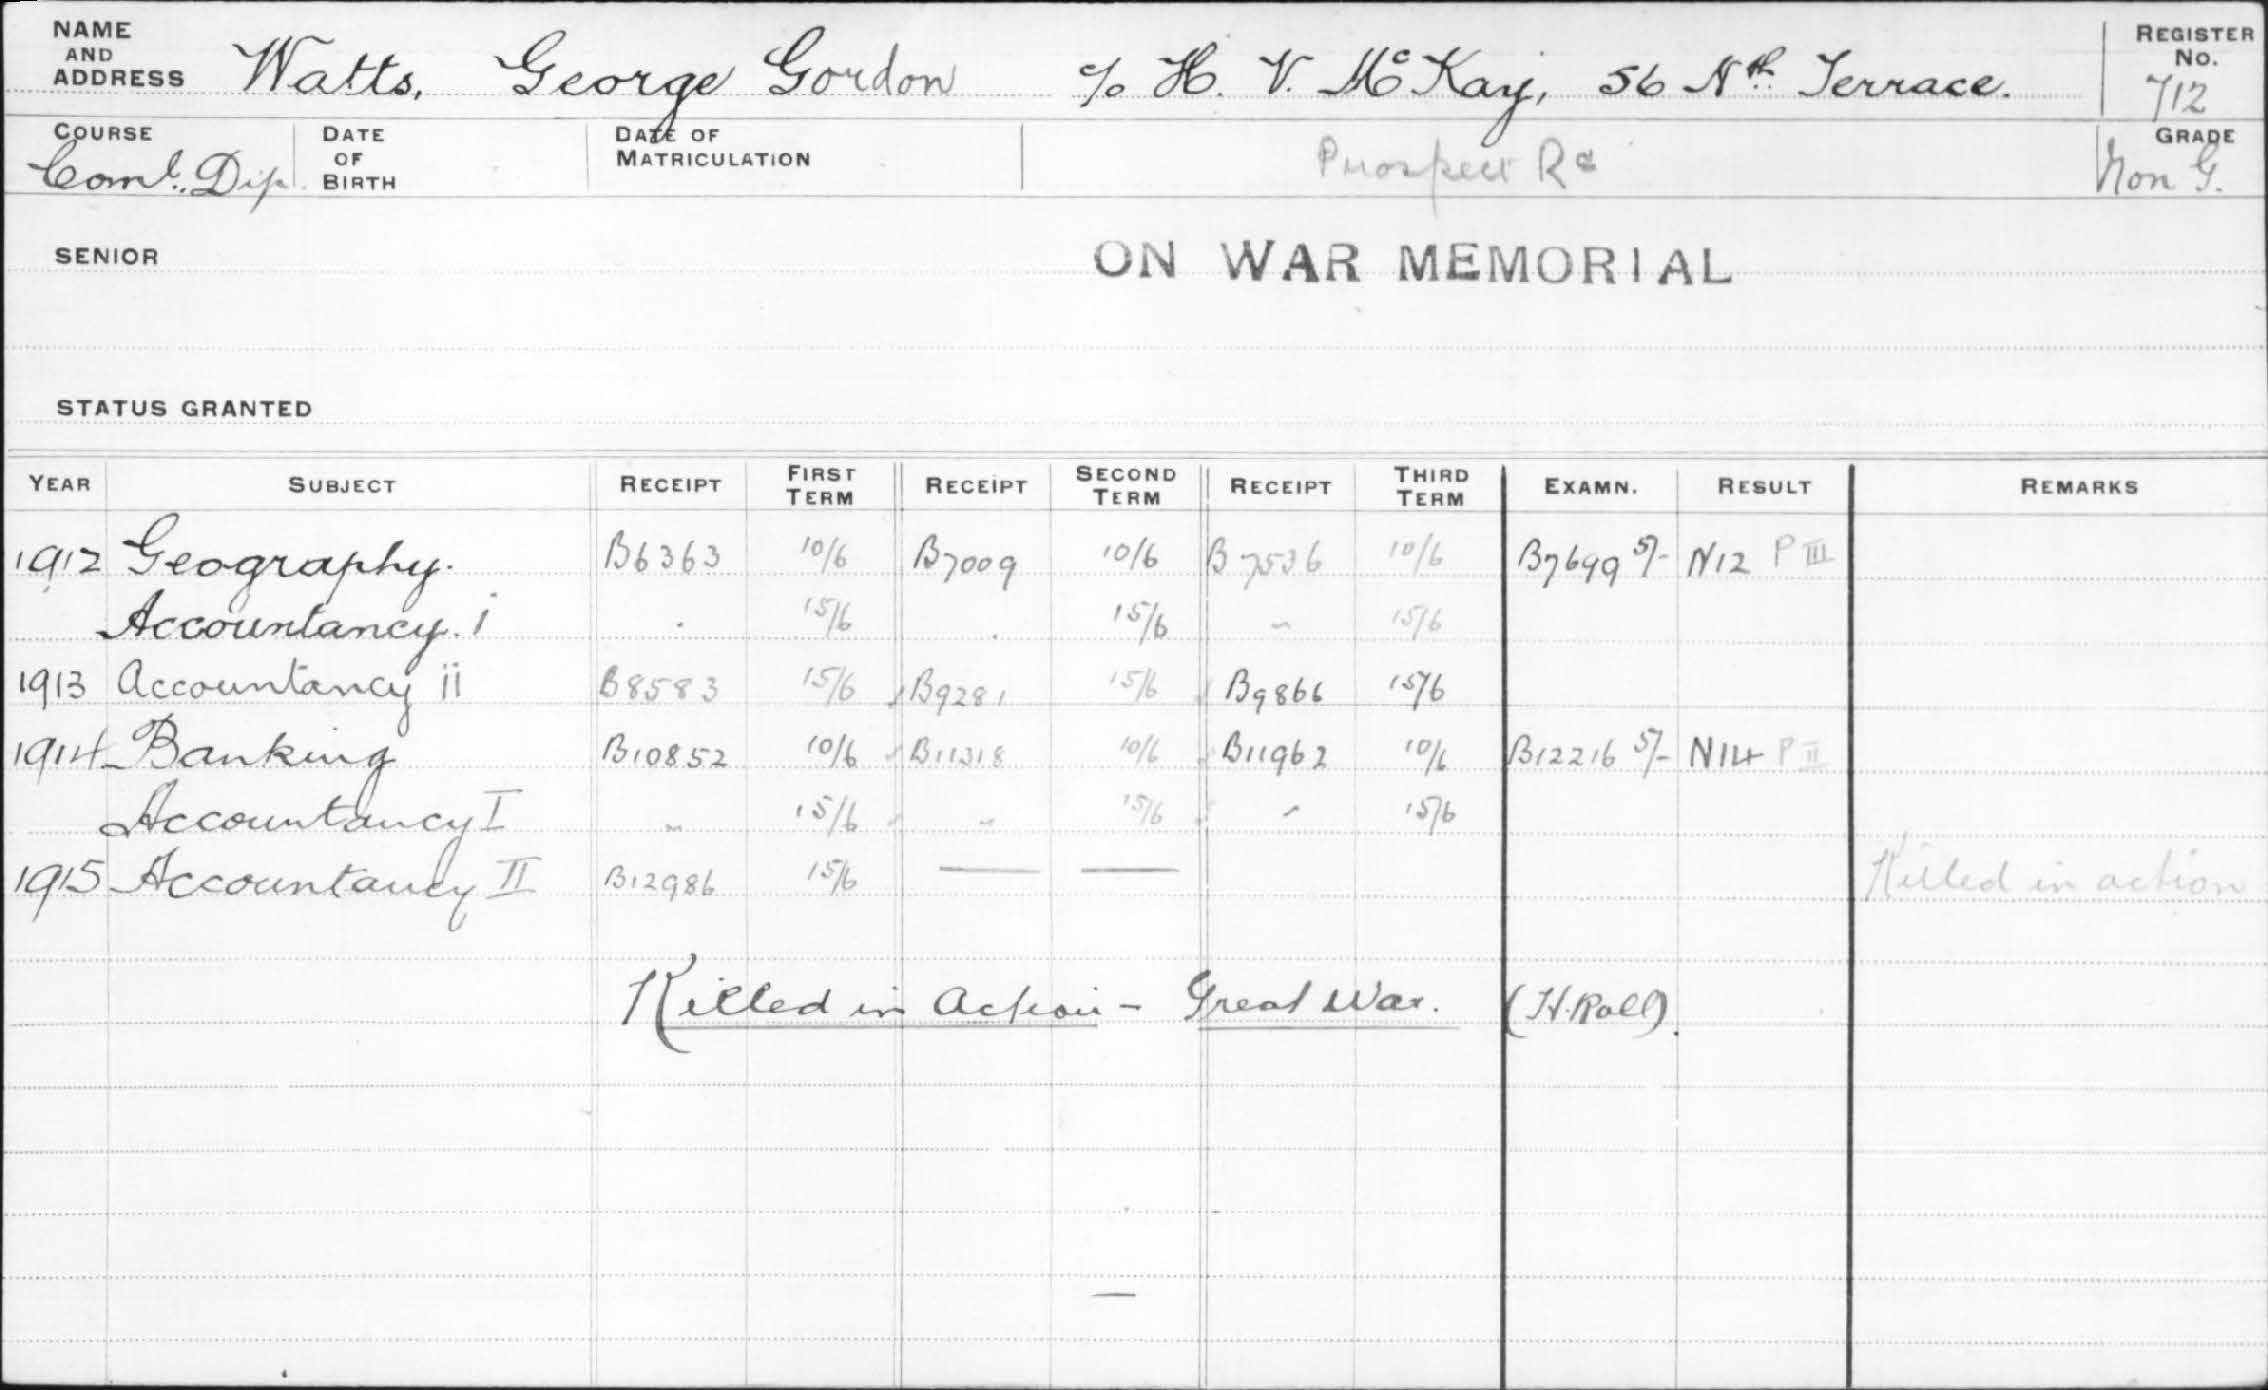 NAME AND ADDRESS Watts, George Gordon c/o H. V. McKay, 56 Nth. Terrace. REGISTER No. 712
COURSE Coml. Dip. DATE OF BIRTH DATE OF MATRICULATION Prospect Rd GRADE Non G.
SENIOR ON WAR MEMORIAL
STATUS GRANTED
YEAR SUBJECT RECEIPT FIRST TERM RECEIPT SECOND TERM RECEIPT THIRD TERM EXAMN. RESULT REMARKS
1912 Geography. B6363 10/6 B7009 10/6 B7536 10/6 B7699 5/- N12 P III
Accountancy. i 15/6 15/6 " 15/6
1913 Accountancy ii B8583 15/6 B9281 15/6 B9866 15/6
1914 Banking B10852 10/6 B11318 10/6 B11962 10/6 B12216 5/- N14 P II
Accountancy I " 15/6 " 15/6 " 15/6
1915 Accountancy II B12986 15/6 — — Killed in action
Killed in Action - Great War. (H. Roll).